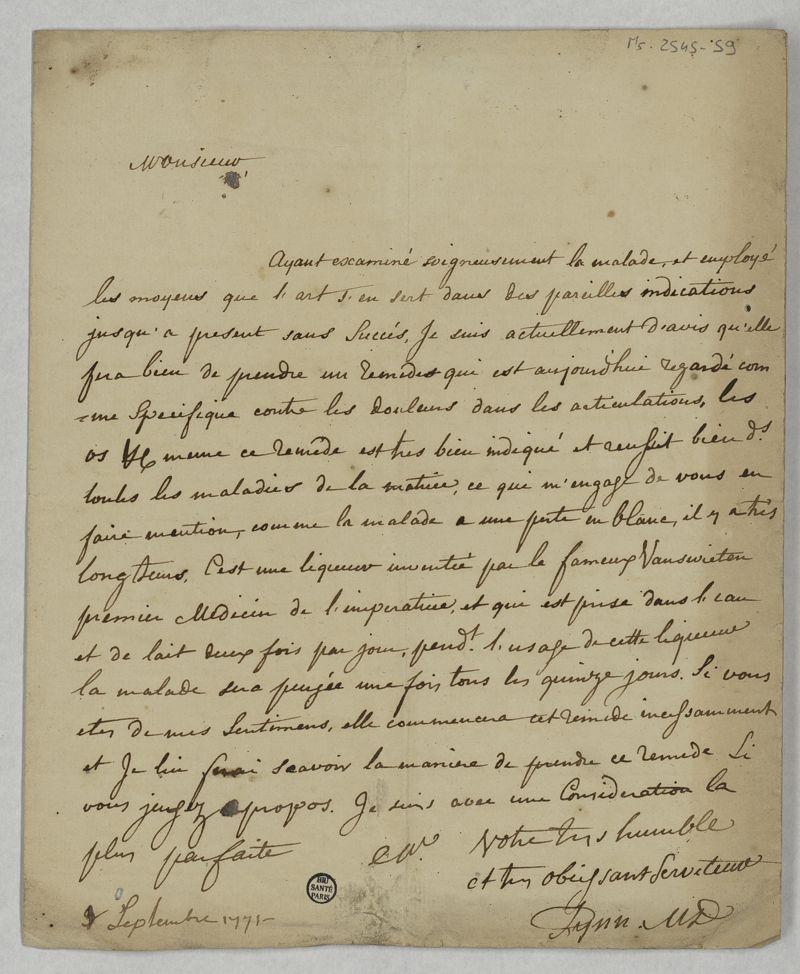 Ms. 2545-59
Monsieur
Ayant examiné soigneusement la malade, et employé
les moyens que l'art s'en sert dans des pareilles indications
jusqu'a present sans Succés, Je suis actuellement d'avis qu'elle
fera bien de prendre un remedes qui est aujourd'hui regardé com
=me Specifique contre les douleurs dans les articulations, les
os &c meme ce remède est tres bien indiqué et reussit bien ds.
toutes les maladies de la matrice, ce qui m'engage de vous en
faire mention, comme la malade a une perte en blanc, il y a très
longtems, C'est une liqueur inventée par le fameux Vanswieten
premier Medicin de l'imperatrice, et qui est prise dans l'eau
et de lait deux fois par jour, pendt. l'usage de cette liqueur
la malade sera purgée une fois tous les quinze jours. Si vous
etes de mes Sentimens, elle commencera cet remede incessamment
et Je lui ferai scavoir la maniere de prendre ce remede Si
vous jugez apropos. Je suis avec une Consideration la
plus parfaite Mr. Votre tres humble
et tres obeissant Serviteur
Septembre 1771 MD
BIU
SANTÉ
PARIS